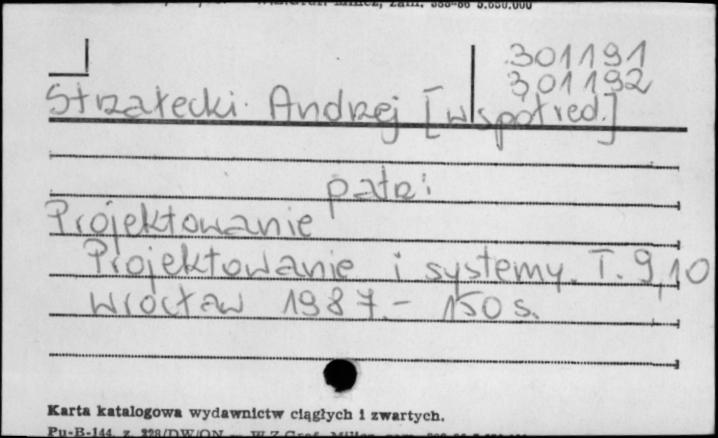 301191
301192
Strzałecki Andrzej [współred.]
patrz:
Projektowanie
Projektowanie i systemy. T. 9,10
Wrocław 1987.- 150 s.
Karta katalogowa wydawnictw ciągłych i zwartych.
Pu-B-144, z. 328/DW/ON